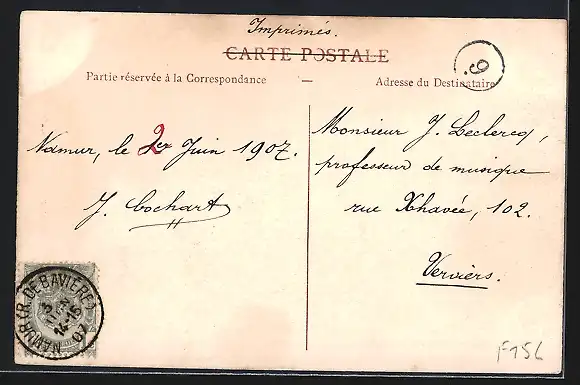 Imprimés.
CARTE POSTALE
Partie réservée à la Correspondance
—
Adresse du Destinataire
9.
Namur, le 2er Juin 1907.
J. Cochart
Monsieur J. Leclercq,
professeur de musique
rue Xhavée, 102.
Verviers.
NAMUR (R. DE BAVIÈRE)
3
14-15
07
F156